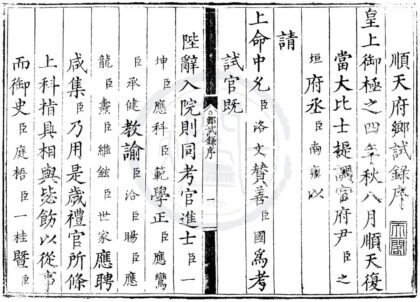 順天府鄉試錄序
皇上御極之四年秋八月順天復
當大比士提調官府尹臣之
垣府丞臣南雍以
請
上命中允臣洛文贊善臣國為考
試官既
鄉試錄序
一
陛辭入院則同考官進士臣一
坤臣應科臣範學正臣應鸞
臣承健教諭臣洽臣暘臣應
龍臣燾臣繼鋐臣世家應聘
咸集臣乃用是歲禮官所條
上科指真相與毖飭以從事
而御史臣庭梧臣一桂暨臣